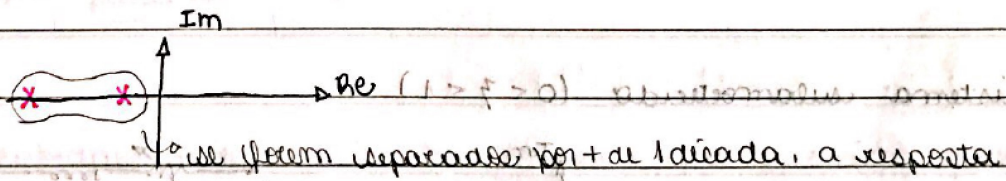 Im
Re
se forem separados por + de 1 década, a resposta